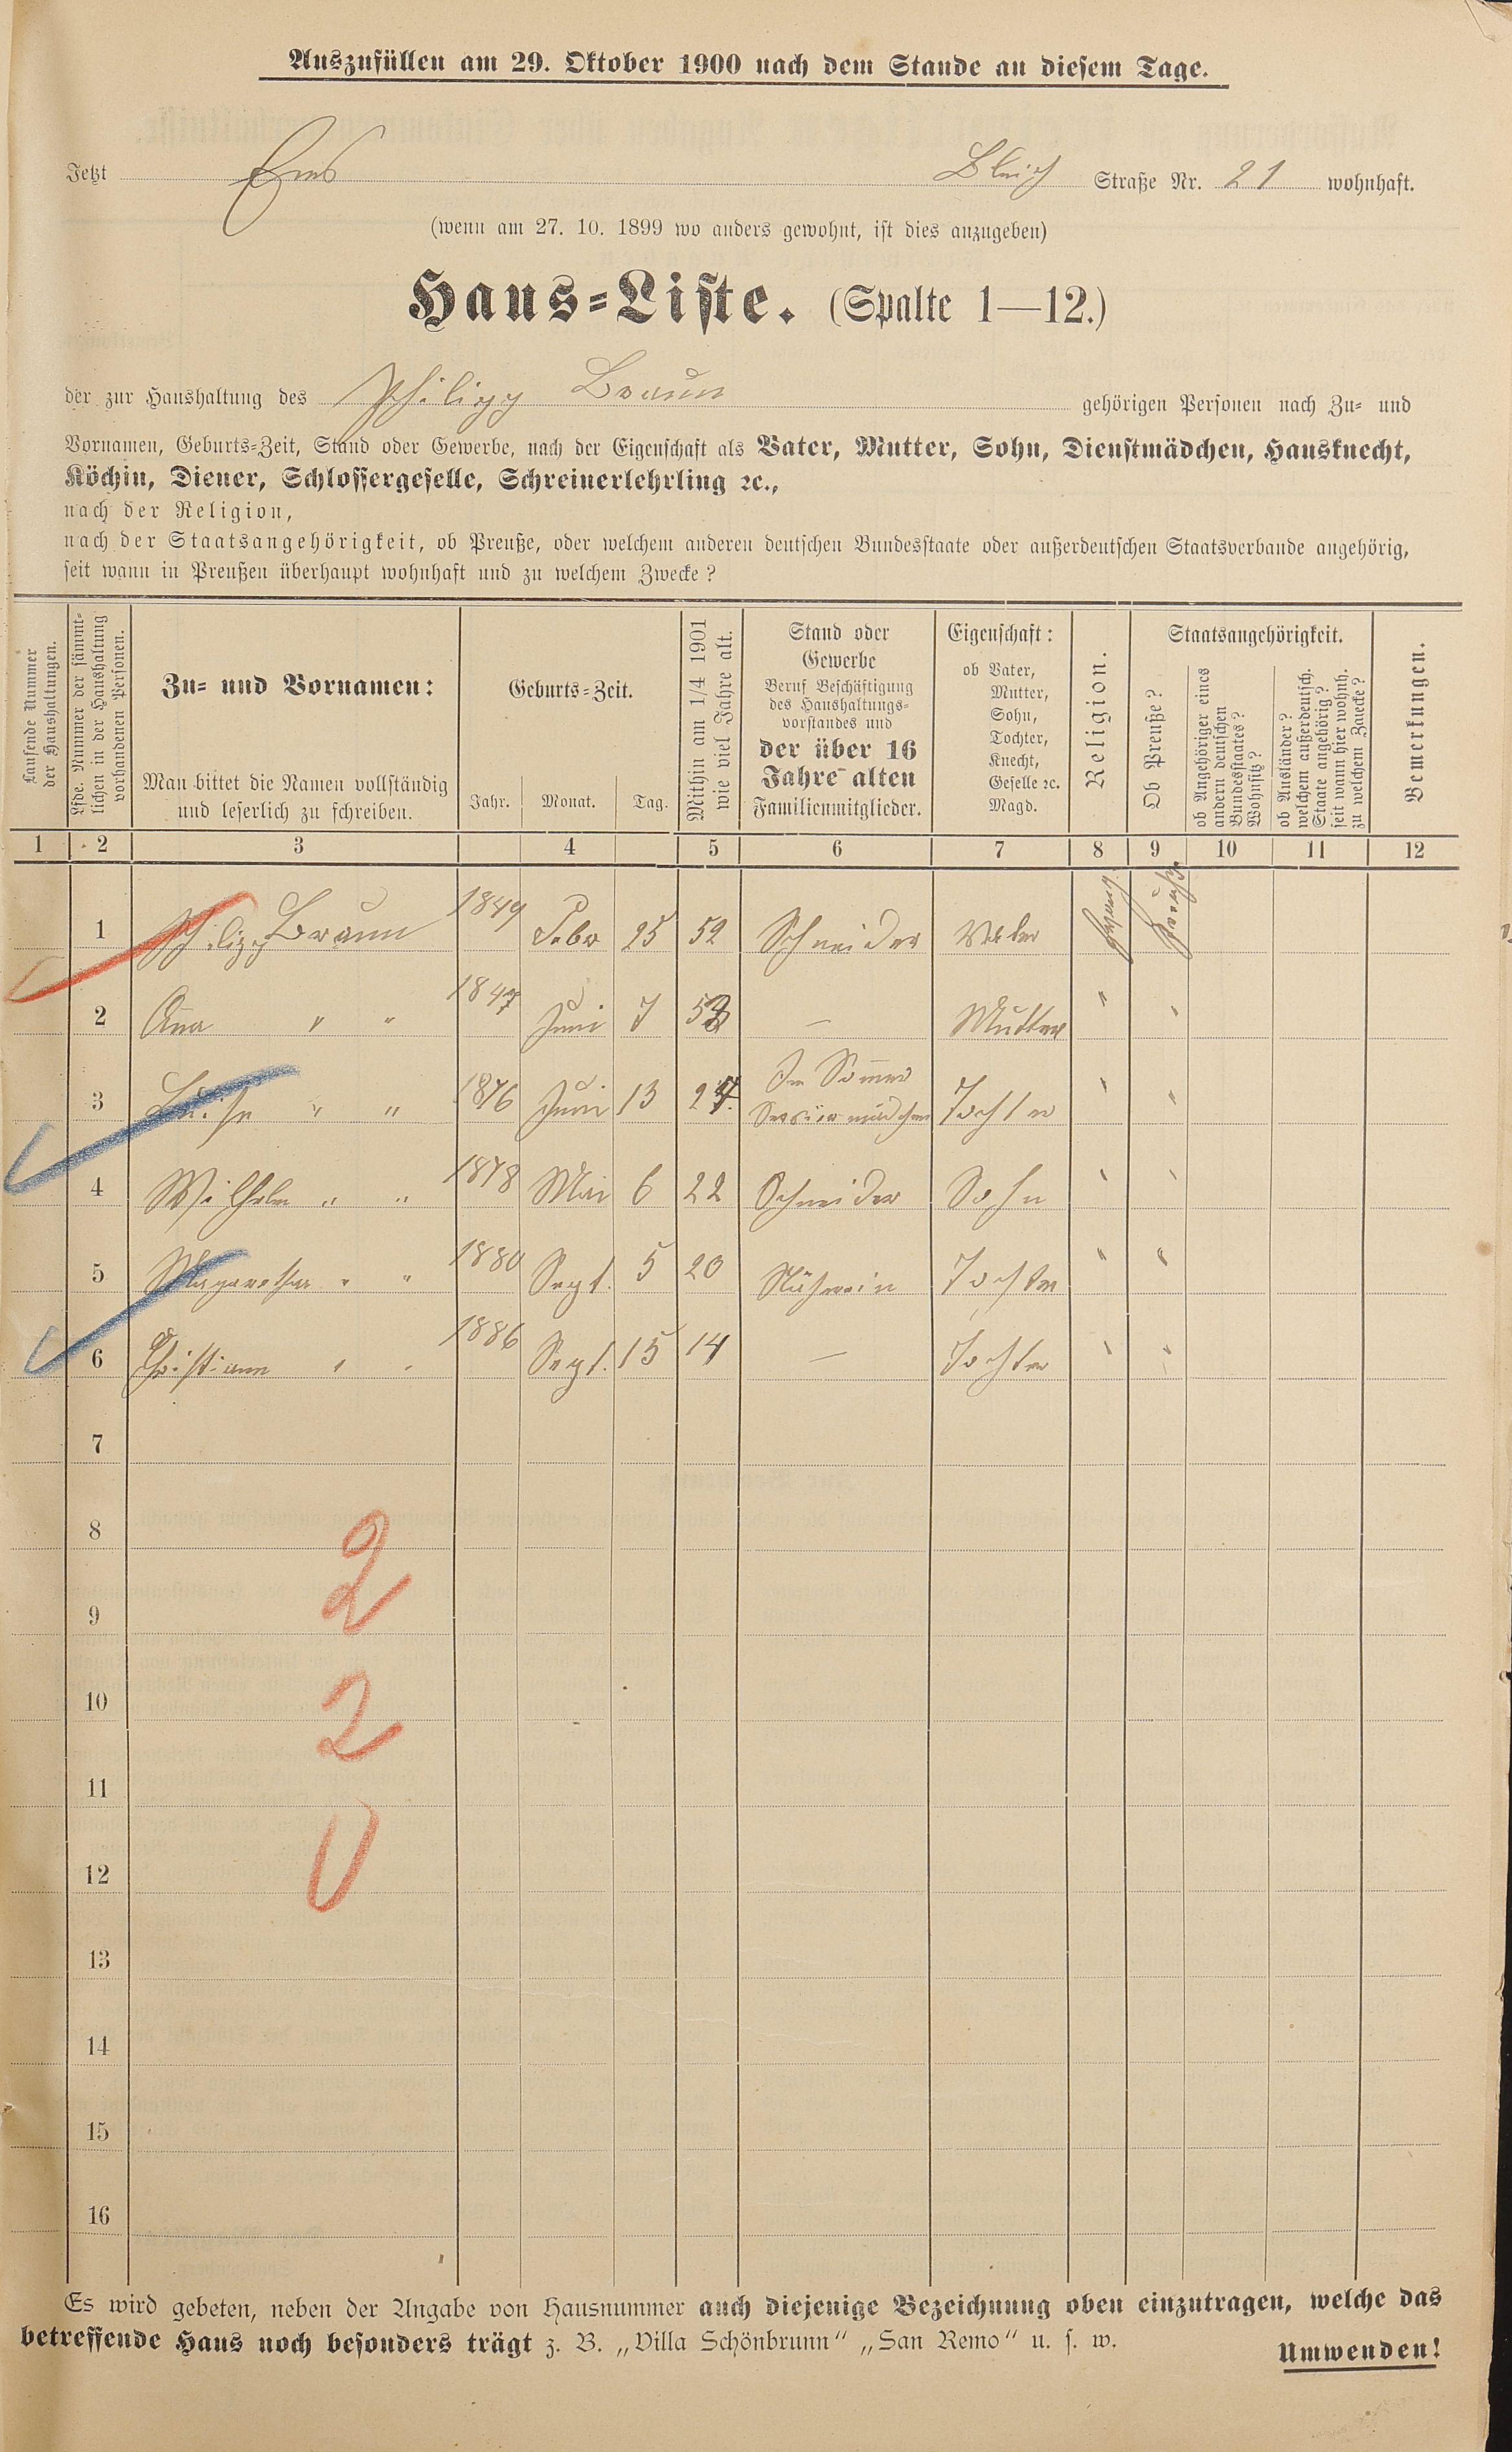 Auszufüllen am 29. Oktober 1900 nach dem Stande an diesem Tage.
Jetzt Ems Bleich Straße Nr. 21 wohnhaft.
(wenn am 27. 10. 1899 wo anders gewohnt, ist dies anzugeben)
Haus-Liste. (Spalte 1—12.)
der zur Haushaltung des Philipp Braun gehörigen Personen nach Zu- und
Vornamen, Geburts-Zeit, Stand oder Gewerbe, nach der Eigenschaft als Vater, Mutter, Sohn, Dienstmädchen, Hausknecht,
Köchin, Diener, Schlossergeselle, Schreinerlehrling ꝛc.,
nach der Religion,
nach der Staatsangehörigkeit, ob Preuße, oder welchem anderen deutschen Bundesstaate oder außerdeutschen Staatsverbande angehörig,
seit wann in Preußen überhaupt wohnhaft und zu welchem Zwecke?
Laufende Nummer
der Haushaltungen.
Lfde. Nummer der sämmt-
lichen in der Haushaltung
vorhandenen Personen.
Zu- und Vornamen:
Man bittet die Namen vollständig
und leserlich zu schreiben.
Geburts-Zeit.
Jahr. Monat. Tag.
Mithin am 1/4 1901
wie viel Jahre alt.
Stand oder
Gewerbe
Beruf Beschäftigung
des Haushaltungs-
vorstandes und
der über 16
Jahre alten
Familienmitglieder.
Eigenschaft:
ob Vater,
Mutter,
Sohn,
Tochter,
Knecht,
Geselle ꝛc.
Magd.
Religion.
Staatsangehörigkeit.
Ob Preuße?
ob Angehöriger eines
andern deutschen
Bundesstaates?
Wohnsitz?
ob Ausländer?
welchem außerdeutsch.
Staate angehörig?
seit wann hier wohnh.
zu welchem Zwecke?
Bemerkungen.
1 2 3 4 5 6 7 8 9 10 11 12
1 Philipp Braun 1849 Febr 25 52 Schneider Vater Preuße
2 Anna " " 1847 Juni 7 53 — Mutter " "
3 Luise " " 1876 Juni 13 24 Im Sommer
Servirmädchen Tochter " "
4 Wilhelm " " 1878 Mai 6 22 Schneider Sohn " "
5 Margaretha " " 1880 Sept. 5 20 Näherin Tochter " "
6 Christiane " " 1886 Sept. 15 14 — Tochter " "
7
8
9
10
11
12
13
14
15
16
2
2
0
Es wird gebeten, neben der Angabe von Hausnummer auch diejenige Bezeichnung oben einzutragen, welche das
betreffende Haus noch besonders trägt z. B. „Villa Schönbrunn“ „San Remo“ u. s. w.
Umwenden!